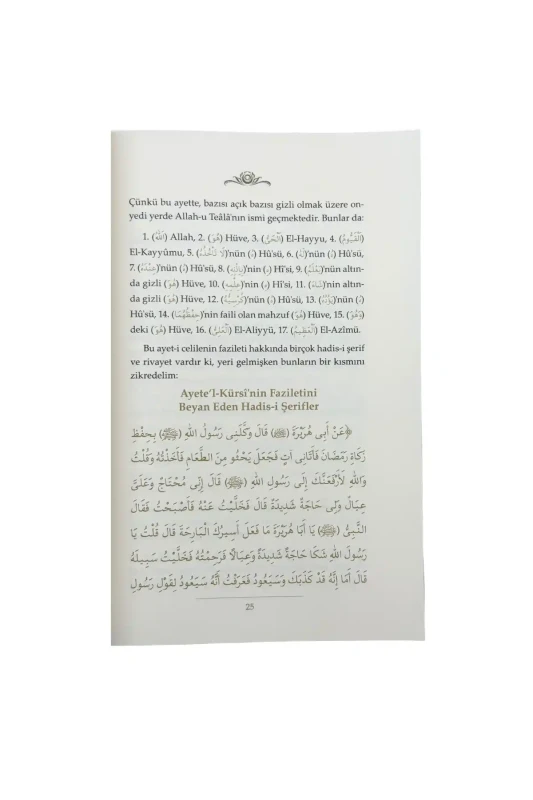 Çünkü bu ayette, bazısı açık bazısı gizli olmak üzere on-
yedi yerde Allah-u Teâlâ'nın ismi geçmektedir. Bunlar da:
1. (اَللّٰهُ) Allah, 2. (هُوَ) Hüve, 3. (اَلْحَيُّ) El-Hayyu, 4. (اَلْقَيُّومُ)
El-Kayyûmu, 5. (لَا تَأْخُذُهُ)'nün (هُ) Hû'sü, 6. (لَهُ)'nün (هُ) Hû'sü,
7. (عِنْدَهُ)'nün (هُ) Hû'sü, 8. (بِاِذْنِهِ)'nin (هِ) Hî'si, 9. (يَعْلَمُ)'nün altın-
da gizli (هُوَ) Hüve, 10. (عِلْمِهِ)'nin (هِ) Hî'si, 11. (شَاءَ)'nin altın-
da gizli (هُوَ) Hüve, 12. (كُرْسِيُّهُ)'nün (هُ) Hû'sü, 13. (يَؤُدُهُ)'nün (هُ)
Hû'sü, 14. (حِفْظُهُمَا)'nin faili olan mahzuf (هُوَ) Hüve, 15. (وَهُوَ)
deki (هُوَ) Hüve, 16. (اَلْعَلِيُّ) El-Aliyyü, 17. (اَلْعَظِيمُ) El-Azîmü.
Bu ayet-i celilenin fazileti hakkında birçok hadis-i şerif
ve rivayet vardır ki, yeri gelmişken bunların bir kısmını
zikredelim:
Ayete'l-Kürsî'nin Faziletini
Beyan Eden Hadis-i Şerifler
﴿عَنْ أَبِى هُرَيْرَةَ (ﷺ) قَالَ وَكَّلَنِى رَسُولُ اللهِ (ﷺ) بِحِفْظِ
زَكَاةِ رَمَضَانَ فَأَتَانِى اٰتٍ فَجَعَلَ يَحْثُو مِنَ الطَّعَامِ فَأَخَذْتُهُ وَقُلْتُ
وَاللهِ لَأَرْفَعَنَّكَ إِلَى رَسُولِ اللهِ (ﷺ) قَالَ إِنِّى مُحْتَاجٌ وَعَلَىَّ
عِيَالٌ وَلِى حَاجَةٌ شَدِيدَةٌ قَالَ فَخَلَّيْتُ عَنْهُ فَأَصْبَحْتُ فَقَالَ
النَّبِىُّ (ﷺ) يَا أَبَا هُرَيْرَةَ مَا فَعَلَ أَسِيرُكَ الْبَارِحَةَ قَالَ قُلْتُ يَا
رَسُولَ اللهِ شَكَا حَاجَةً شَدِيدَةً وَعِيَالًا فَرَحِمْتُهُ فَخَلَّيْتُ سَبِيلَهُ
قَالَ أَمَا إِنَّهُ قَدْ كَذَبَكَ وَسَيَعُودُ فَعَرَفْتُ أَنَّهُ سَيَعُودُ لِقَوْلِ رَسُولِ
25